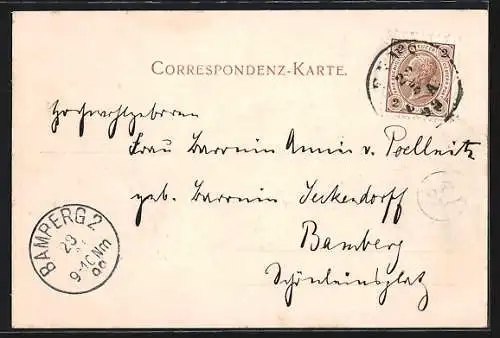 CORRESPONDENZ-KARTE.
Hochwohlgeboren
Frau Baronin Annie v. Poellnitz
geb. Baronin Seckendorff
Bamberg
Schönleinsplatz
BAMBERG 2
29
9-10 Nm
2 2